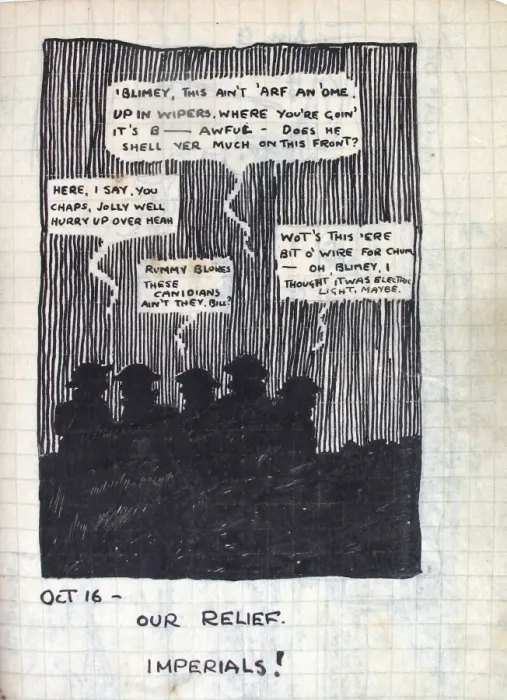 'BLIMEY, THIS AIN'T 'ARF AN 'OME.
UP IN WIPERS, WHERE YOU'RE GOIN'
IT'S B—— AWFUL - DOES HE
SHELL YER MUCH ON THIS FRONT?
HERE, I SAY, YOU
CHAPS, JOLLY WELL
HURRY UP OVER HEAH
WOT'S THIS 'ERE
BIT O' WIRE FOR CHUM
— OH, BLIMEY, I
THOUGHT IT WAS ELECTRIC
LIGHT, MAYBE.
RUMMY BLOKES
THESE
CANIDIANS
AIN'T THEY, BILL?
OCT 16 -
OUR RELIEF.
IMPERIALS!